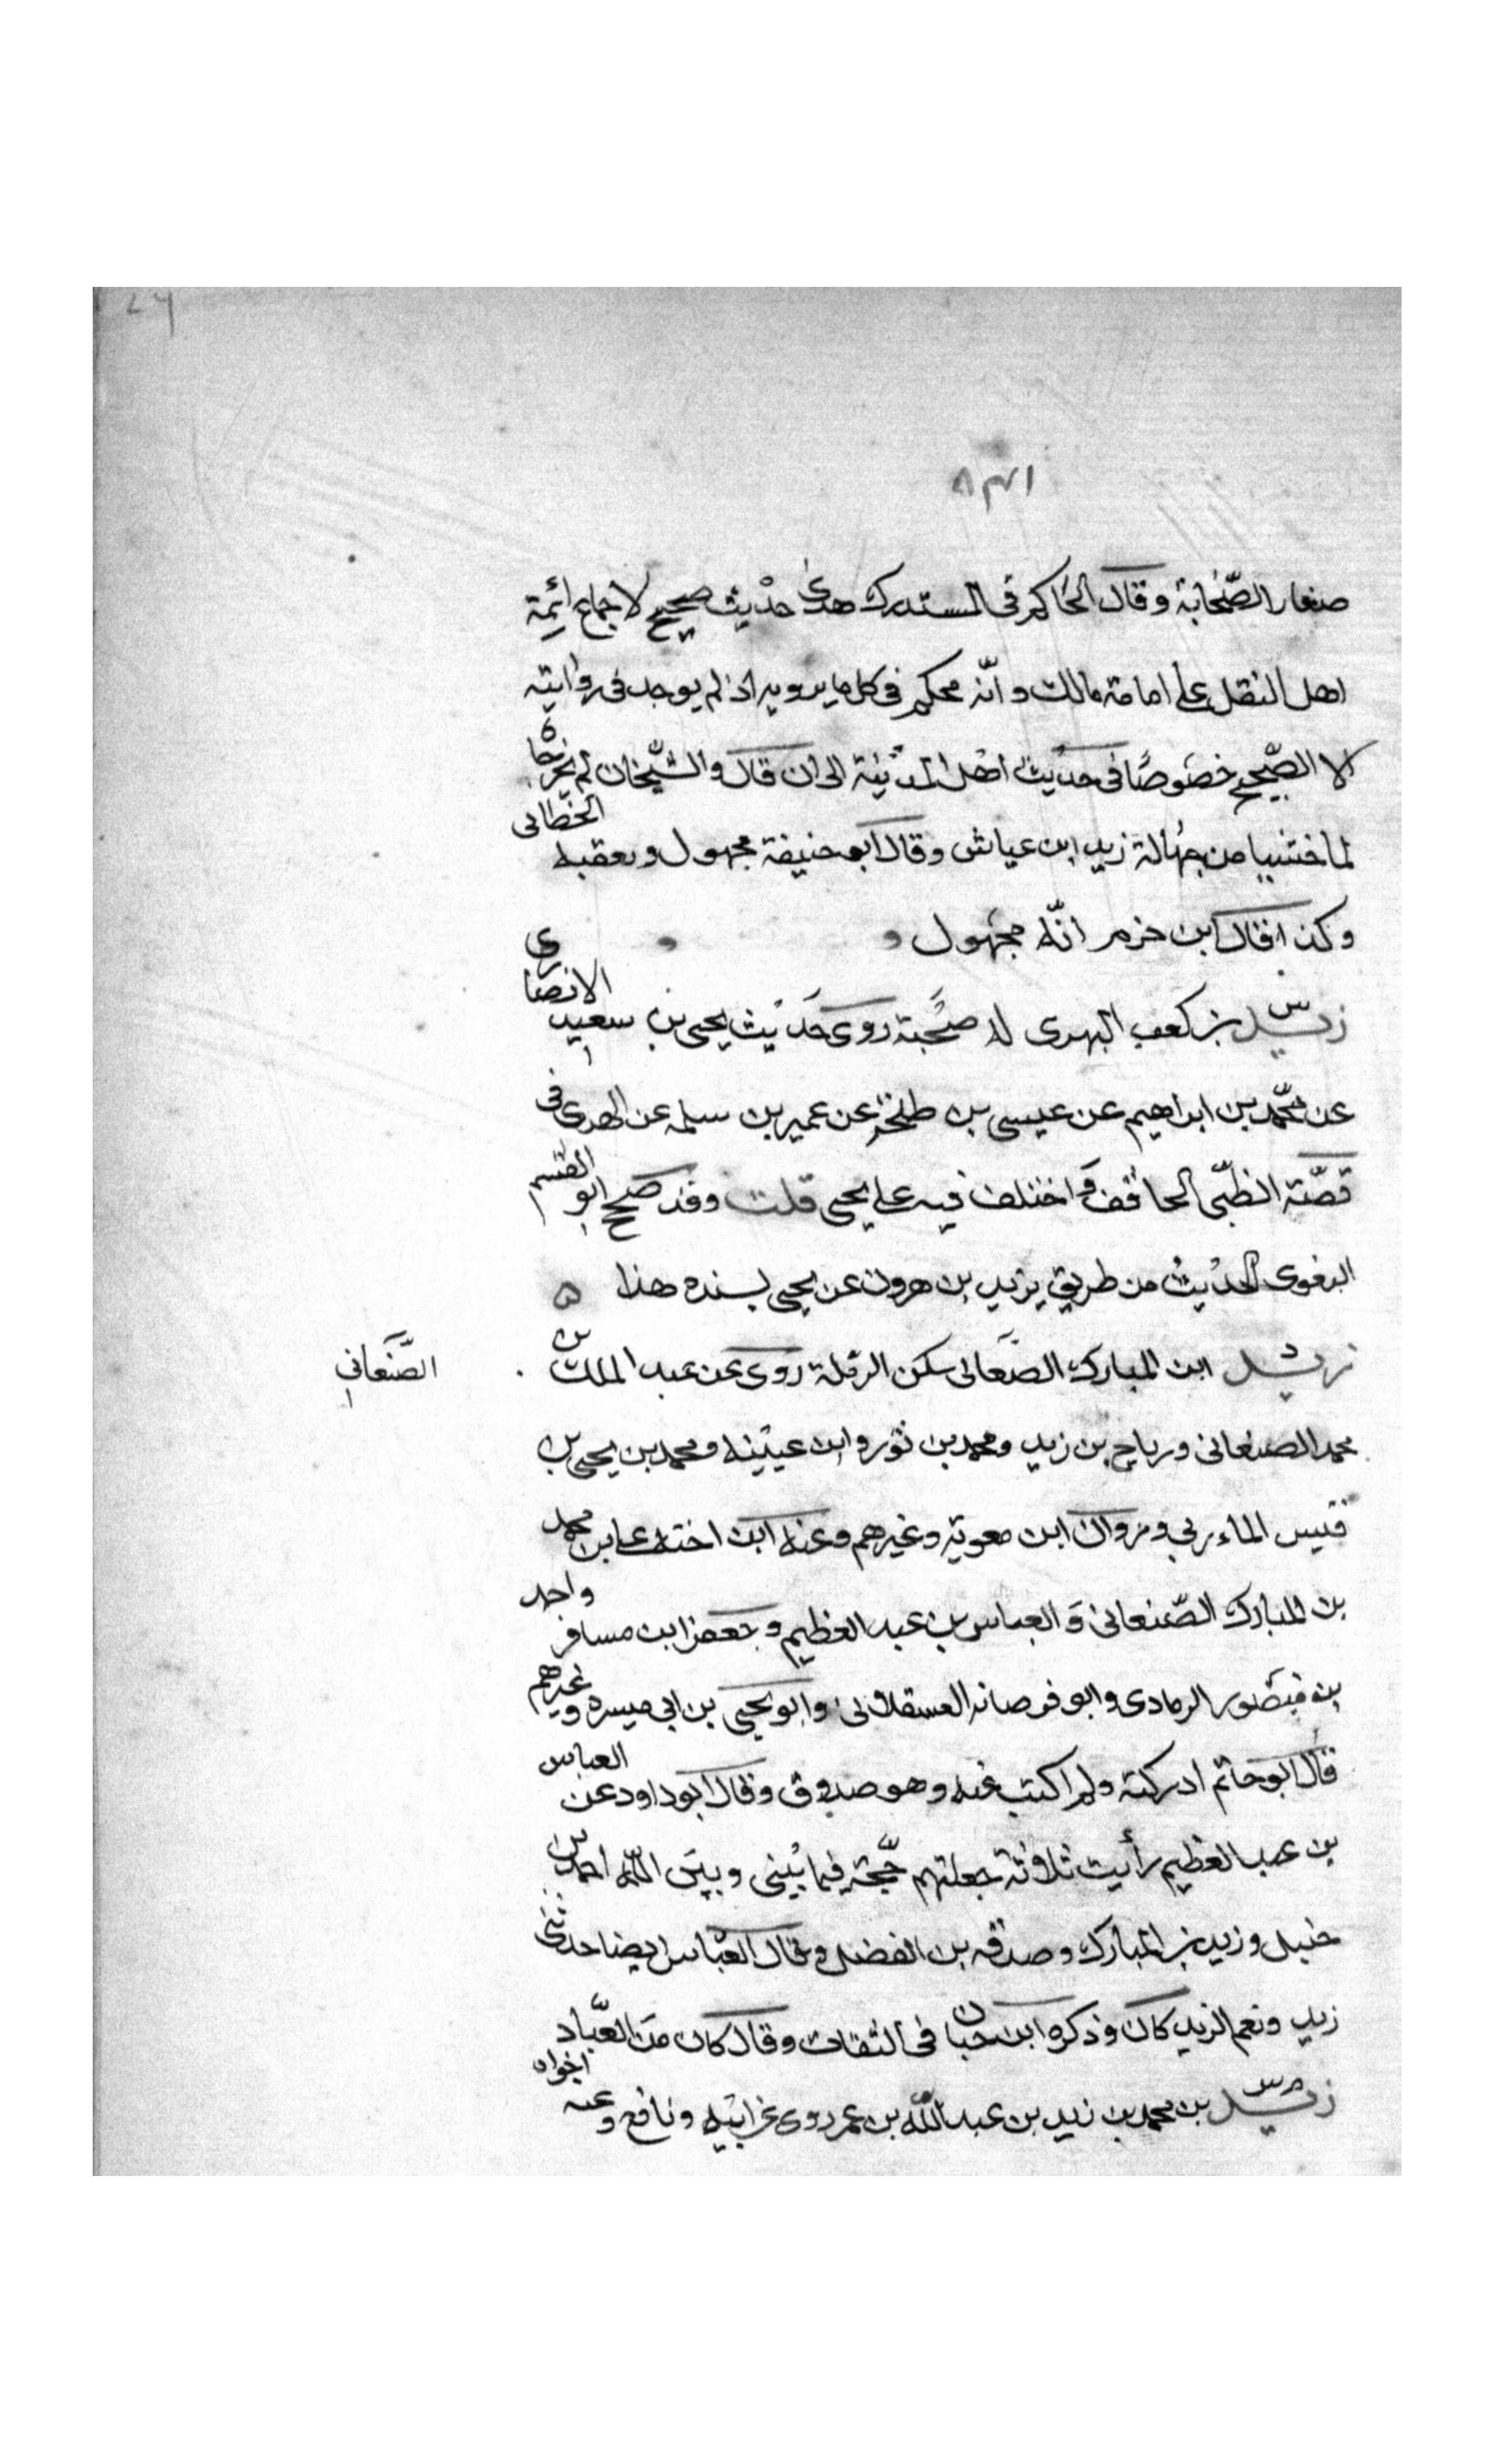 ٢٦
١٣٨
صغار الصّحابة وقال الحاكم في المستدرك هدى حديث صحيح لاجماع ائمة
اهل النقل على امامة مالك وانّه محكم في كل ما يرويه اذ لم يوجد في روايته
الا الصّحيح خصوصًا في حديث اهل المدينة الى ان قال والشّيخان لم يخرجاه
لما خشيا من جهالة زيد ابن عياش وقال ابو حنيفة مجهول وتعقبه الخطابى
وكذا قال ابن حزم انّه مجهول
زيد بن كعب البهزى له صحبة روى حديث يحيى بن سعيد الانصارى
عن محمّد بن ابراهيم عن عيسى بن طلحة عن عمير بن سلمه عن البهزى فى
قصّة الظبّى الحاقف واختلف فيه على يحيى قلت وقد صحح ابو القسم
البغوى الحديث من طريق يزيد بن هرون عن يحيى بسنده هذا ه
زيد ابن المبارك الصّنعانى سكن الرملة روى عن عبد الملك بن
الصّنعانى
محمد الصنعانى ورباح بن زيد ومحمد بن ثور وابن عيينه ومحمد بن يحيى بن
قيس الماءربي ومروان ابن معوية وغيرهم وعنه ابن اخته على بن محمد
بن المبارك الصّنعانى وَ العباس بن عبد العظيم وجعفر ابن مسافر واحد
بن منصور الرمادى وابو فرصانه العسقلانى وابو يحيى بن ابى ميسره وغيرهم
قال ابو حاتم ادركته ولم اكتب عنه وهو صدوق وقال ابو داود عن العباس
بن عبد العظيم رأيت ثلاثة جعلتهم حجّة فيما بينى وبين اللّه احمد بن
حنبل وزيد بن المبارك وصدقه بن الفضل وقال العبّاس ايضا حدثنى
زيد ونعم الزيد كان وذكره ابن حبان فى الثقات وقال كان من العبّاد
زيد بن محمد بن زيد بن عبد اللّه بن عمر روى عن ابيه ونافع وعنه اخواه